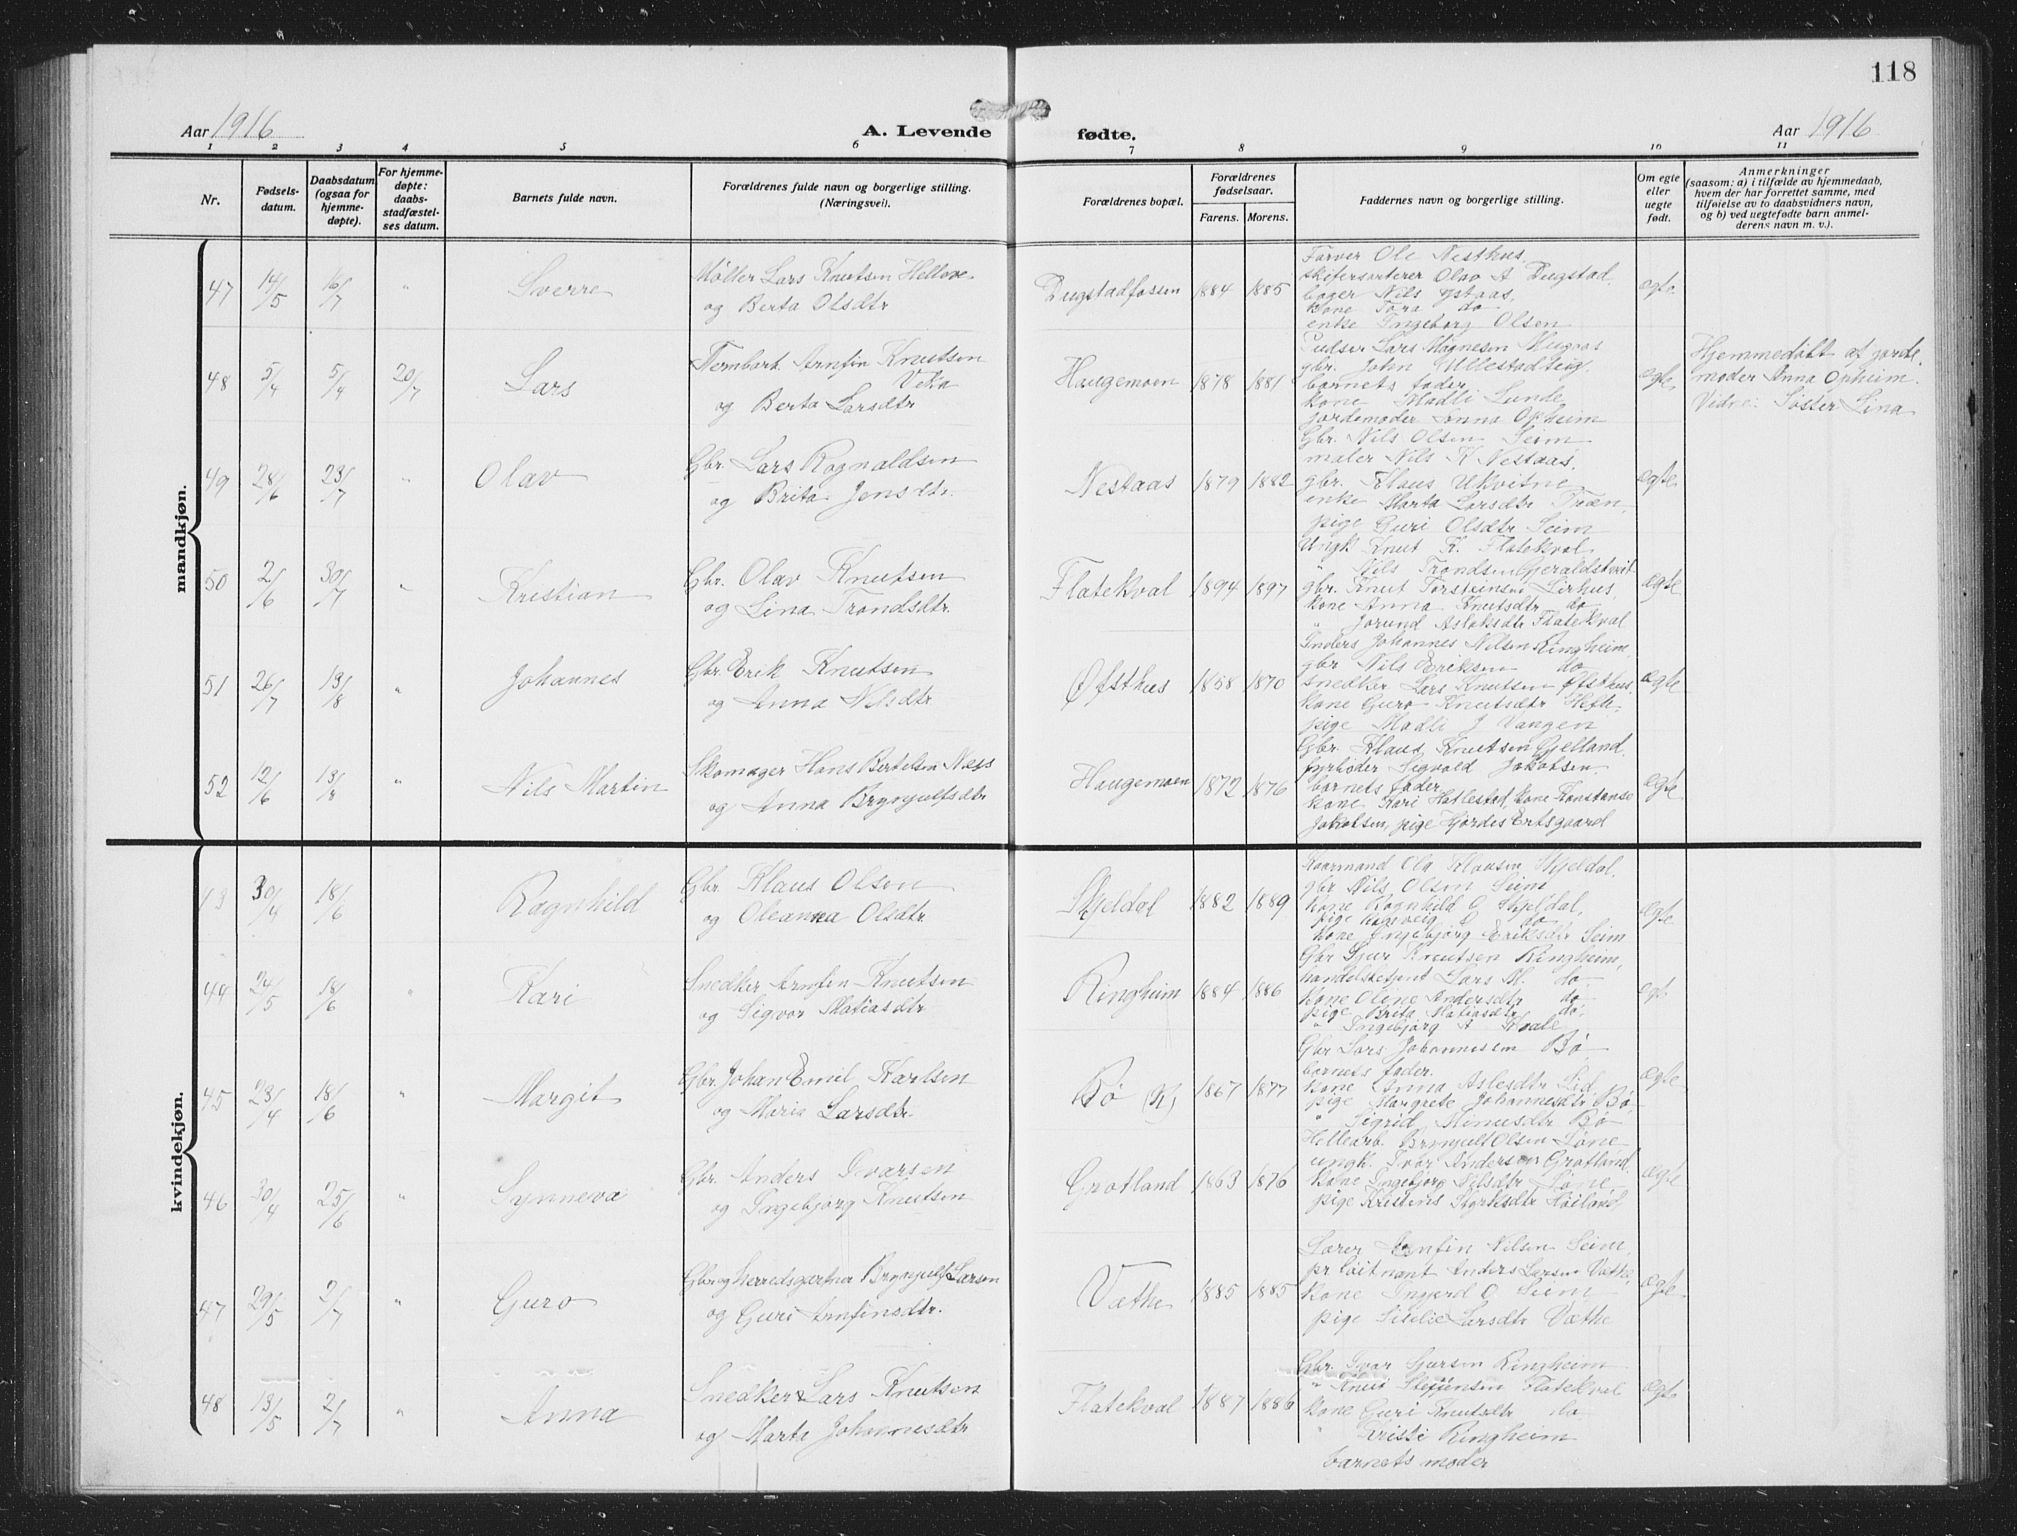 118
Aar 1916
A. Levende fødte.
Aar 1916
1 2 3 4 5 6 7 8 9 10 11
Nr.
Fødsels-
datum.
Daabsdatum
(ogsaa for
hjemme-
døpte).
For hjemme-
døpte:
daabs-
stadfæstel-
ses datum.
Barnets fulde navn.
Forældrenes fulde navn og borgerlige stilling.
(Næringsvei).
Forældrenes bopæl.
Forældrenes
fødselsaar.
Farens. Morens.
Faddernes navn og borgerlige stilling.
Om egte
eller
uegte
født.
Anmerkninger
(saasom: a) i tilfælde av hjemmedaab,
hvem der har forrettet samme, med
tilføielse av to daabsvidners navn,
og b) ved uegtefødte barn anmel-
derens navn m. v.).
mandkjøn.
47 14/5 16/7 " Sverre
Møller Lars Knutsen Helleve
og Berta Olsdtr
Dugstadfossen 1884 1885
Farver Ole Nesthus,
skifersorterer Olav A Dugstad,
bager Nils Ystaas,
kone Tora do
enke Ingeborg Olsen
egte
48 5/4 5/4 20/7 Lars
Arnfin Knutsen
og Berta Larsdtr
Haugemoen 1878 1881
Pudser Lars Magnesen Mugaas
gbr. John Ullestadteig,
barnets fader,
kone Madli Lunde
jordemoder Anna Opheim
egte
Hjemmedøbt af jorde
moder Anna Opheim.
Vidne: Søster Lina
49 28/6 23/7 " Olav
Gbr. Lars Rognaldsen
og Brita Jensdtr.
Nestaas 1879 1882
Gbr. Nils Olsen Seim
maler Nils K Nestaas,
gbr. Klaus Utkvitne
enke Marta Larsdtr Træn,
pige Guri Olsdtr Seim
egte
50 2/6 30/7 " Kristian
Gbr. Olav Knutsen
og Lina Trondsdtr.
Flatekval 1894 1897
Ungk Knut K. Flatekval
" Nils Trondsen Gjeraldstveit
gbr. Knut Torsteinsen Lirhus,
kone Anna Knutsdtr do
" Jorund Aslaksdtr Flatekval
egte
51 26/7 13/8 " Johannes
Gbr. Erik Knutsen
og Anna Nilsdtr
Øfsthus 1858 1870
Inders Johannes Nilsen Ringheim,
gbr Nils Eriksen do
snedker Lars Knutsen Øfsthus,
kone Guro Knutsdtr Hefte,
pige Madli J Vangen
egte
52 12/6 13/8 " Nils Martin
Skomager Hans Bertelsen Næss
og Anna Brynjulfsdtr
Haugemoen 1872 1876
Gbr. Klaus Knutsen Gjelland
fyrbøder Sigvald Jakobsen
barnets fader,
kone Kari Hatlestad, kone Konstanse
Jakobsen, pige Hjørdis Ertsgaard
egte
kvindekjøn.
43 30/4 18/6 Ragnhild
Gbr Klaus Olsen
og Oleanna Olsdtr
Skjeldal 1882 1889
Kaarmand Ola Klausen Skjeldal,
gbr Nils Olsen Seim
kone Ragnhild O Skjeldal,
pige O do
kone Ingebjørg Eriksdtr Seim
egte
44 24/5 18/6 " Kari
Snedker Arnfin Knutsen
og Sigvor Matiasdtr
Ringheim 1884 1886
Gbr Sjur Knutsen Ringheim,
handelsbetjent Lars M. do
kone Oline Andersdtr do
pige Brita Matiasdtr do,
" Ingebjørg A
egt
45 23/4 18/6 " Margit
Gbr. Johan Emil Karlsen
og Maria Larsdtr.
Bø (R) 1867 1877
Gbr Lars Johannesen Bø
barnets fader.
kone Anna Aslesdtr Lid
pige Margrete Johannesdtr Bø
" Sigrid Bø
egte
46 30/4 25/6 " Synneva
Gbr. Anders Ivarsen
og Ingebjørg Knutsen
Grotland 1863 1876
Hellearb. Brynjulf Olsen Løne
ungk. Ivar Andersen Grotland,
kone Ingebjørg Nilsdtr Løne,
pige Kristine Høiland,
egte
47 29/5 2/7 " Guro
Gbr og herredsgartner Brynjulf Larsen
og Guri Arnfinsdtr.
Væthe 1885 1885
Lærer Arnfin Nilsen Seim,
pr. løitnant Anders Larsen Væthe,
kone Ingerd O. Seim
pige Sisilie Larsdtr Væthe
egte
48 13/5 2/7 " Anna
Snedker Lars Knutsen
og Marta Johannesdtr
Flatekval 1887 1886
Gbr. Ivar Sjursen Ringheim
" Knut Steffensen Flatekval
kone Guri Knutsdtr do
" Kristi Ringheim
barnets moder
egte